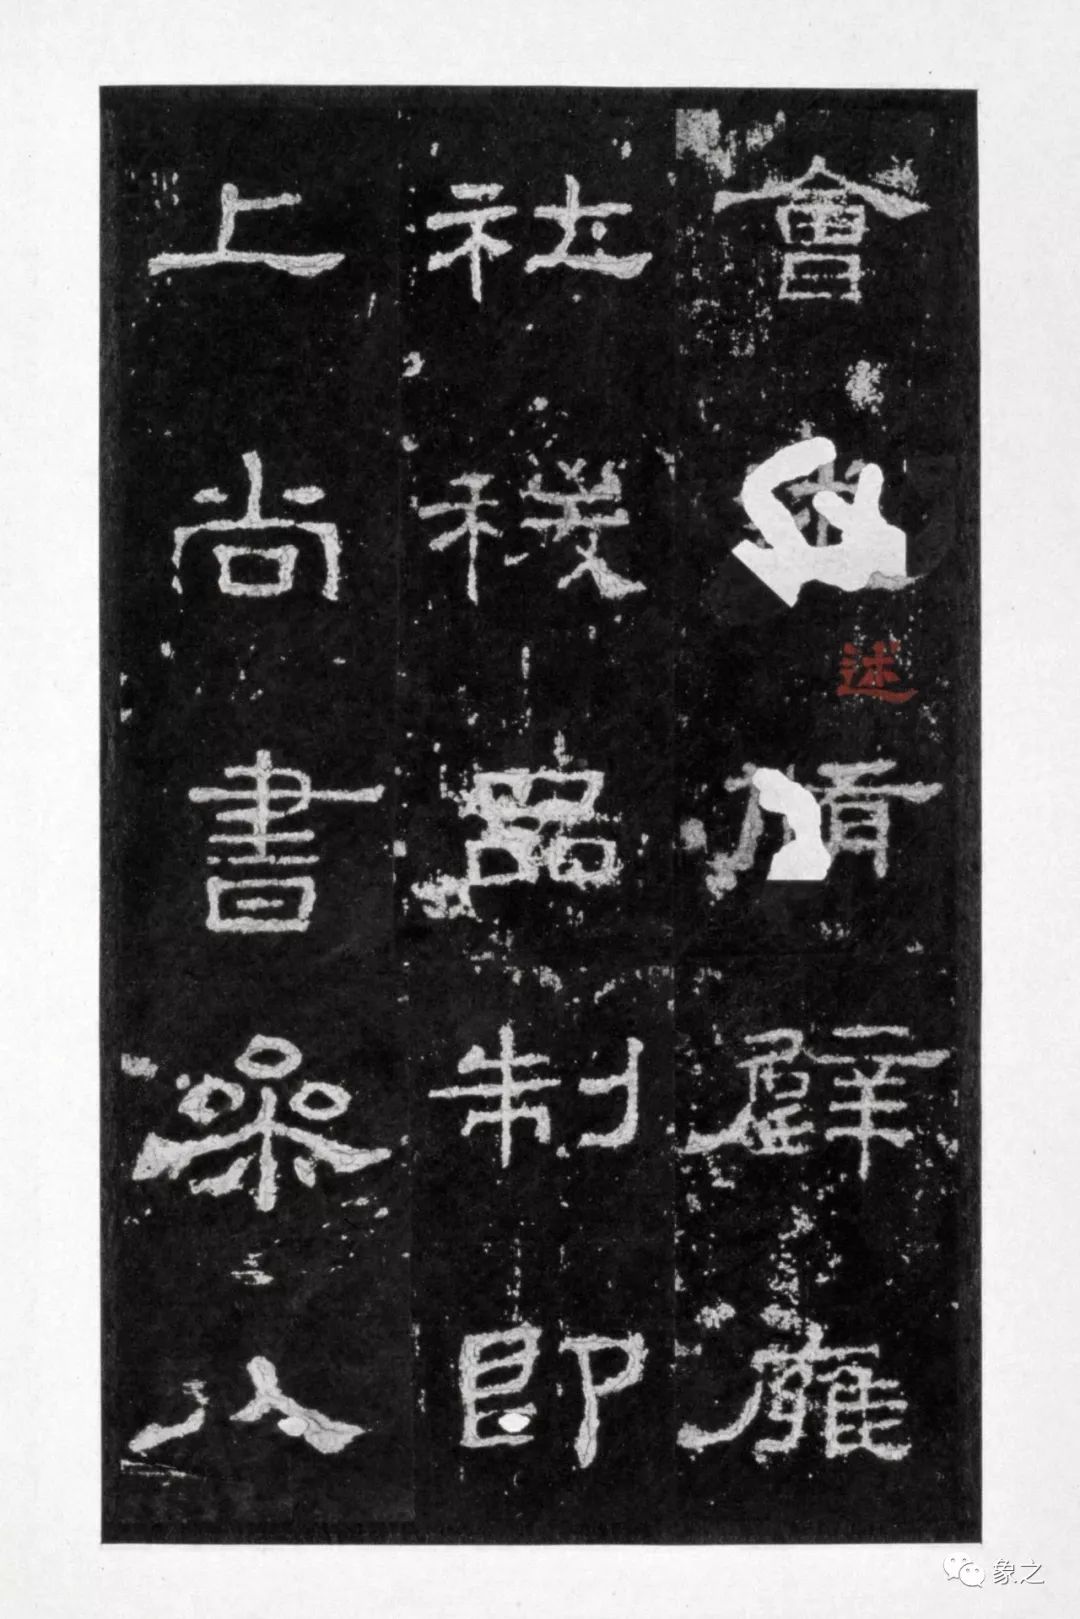 會述脩辟廱
社稷品制即
上尚書參以
象之